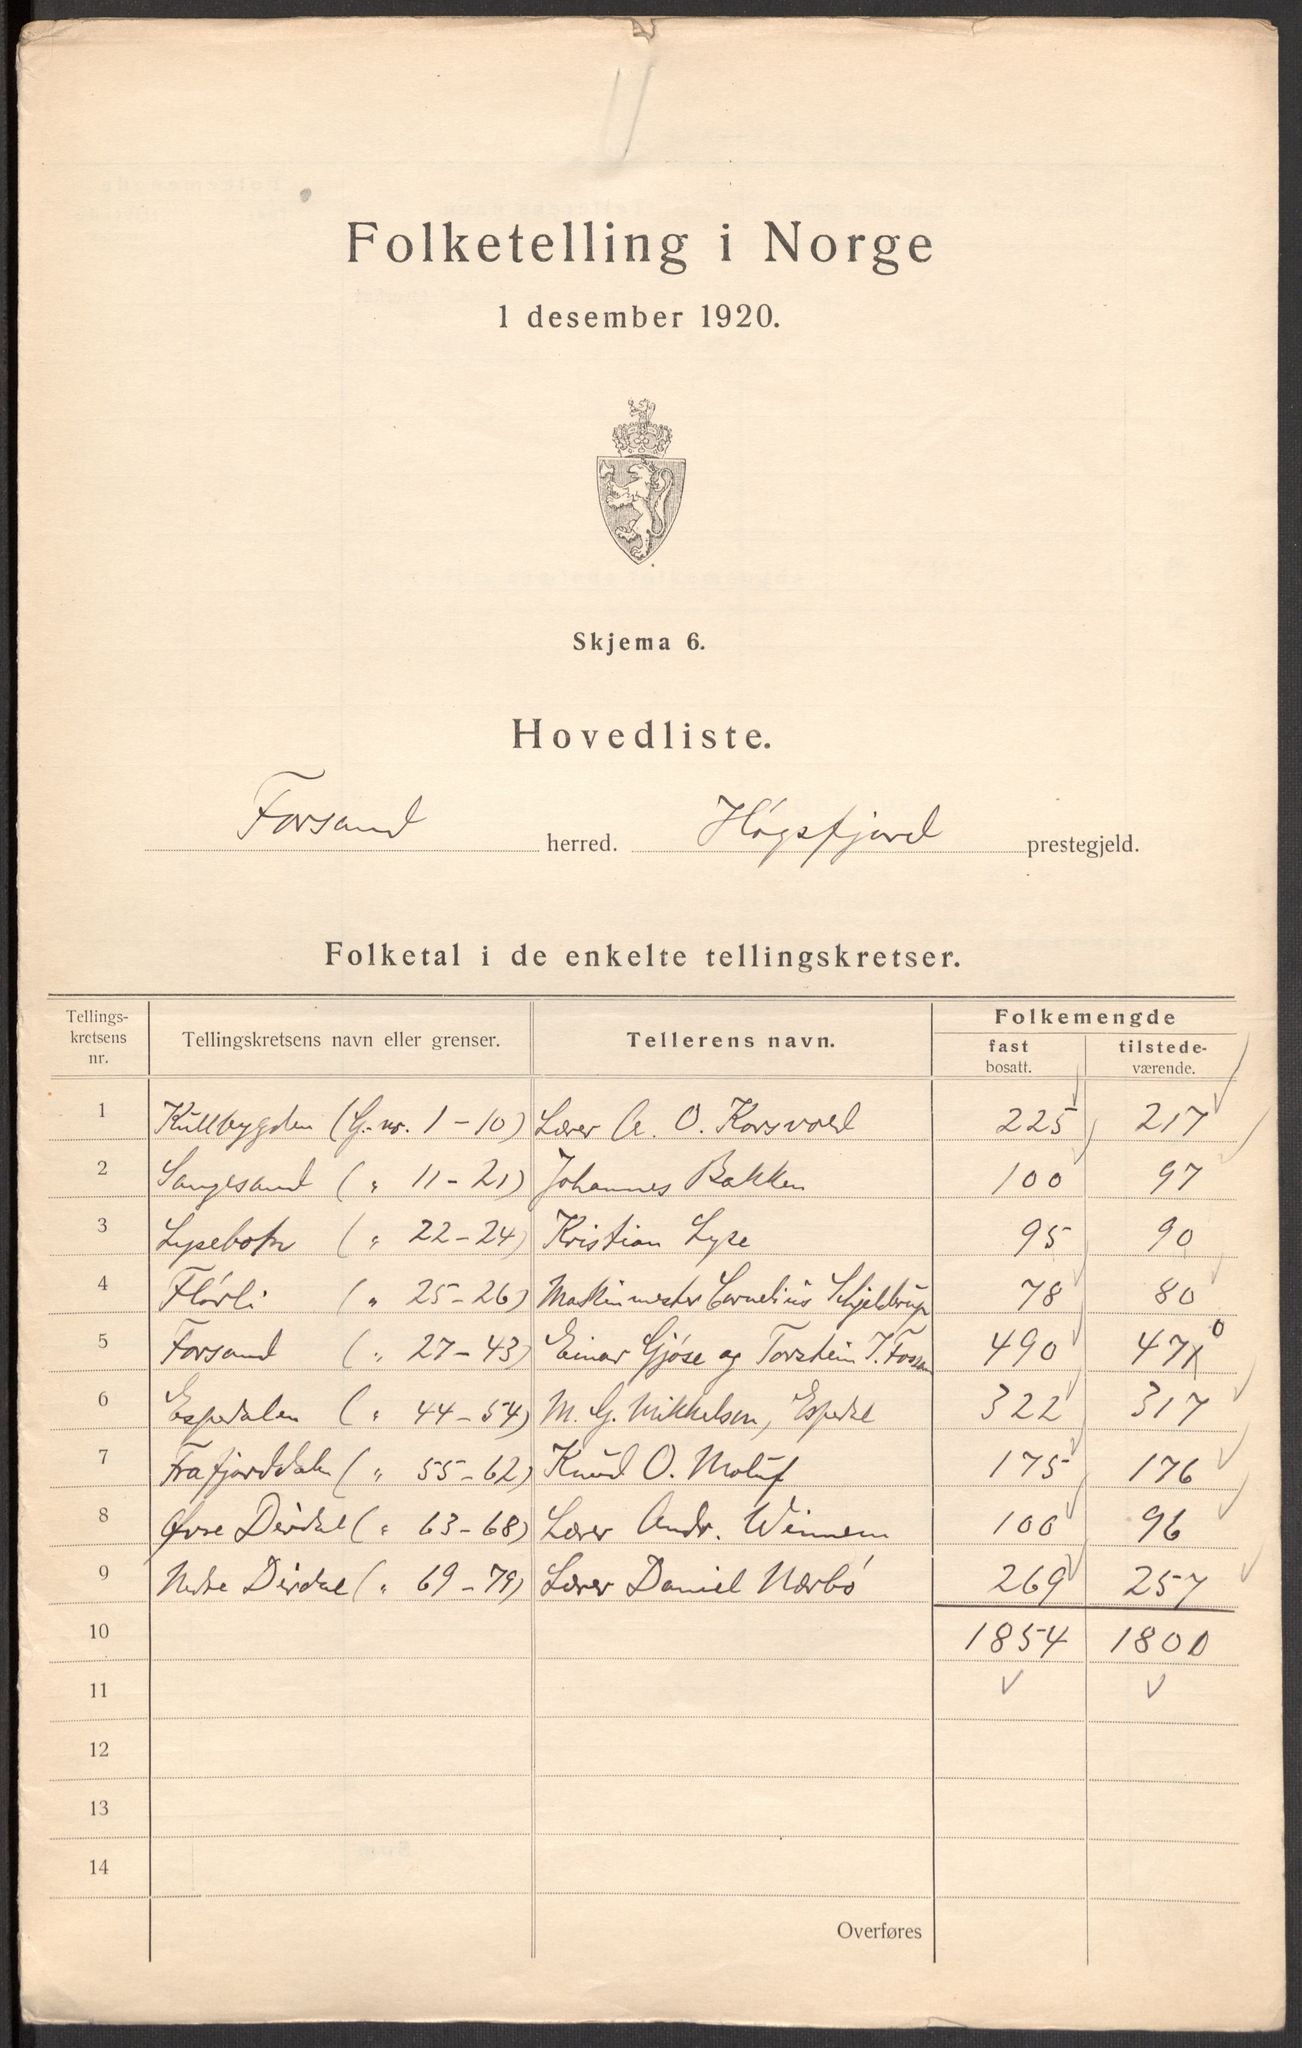 Folketelling i Norge
1 desember 1920.
Skjema 6.
Hovedliste.
Forsand herred. Høgsfjord prestegjeld.
Folketal i de enkelte tellingskretser.
Tellings-kretsens nr. Tellingskretsens navn eller grenser. Tellerens navn. Folkemengde
fast bosatt. tilstede-værende.
1 Kullbygden (G. nr. 1-10) Lærer A. O. Korsvold 225 217
2 Songesand (" 11-21) Johannes Bakken 100 97
3 Lysebotn (" 22-24) Kristian Lyse 95 90
4 Flørli (" 25-26) Maskinmester Cornelius Schjelderup 78 80
5 Forsand (" 27-43) Einar Gjøse og Torstein T. Fossan 490 470
6 Espedalen (" 44-54) M. G. Mikkelsen, Espedal 322 317
7 Frafjorddalen (" 55-62) Knud O. Molaug 175 176
8 Øvre Dirdal (" 63-68) Lærer Andr. Winnem 100 96
9 Nedre Dirdal (" 69-79) Lærer Daniel Nærbø 269 257
10 1854 1800
11
12
13
14
Overføres